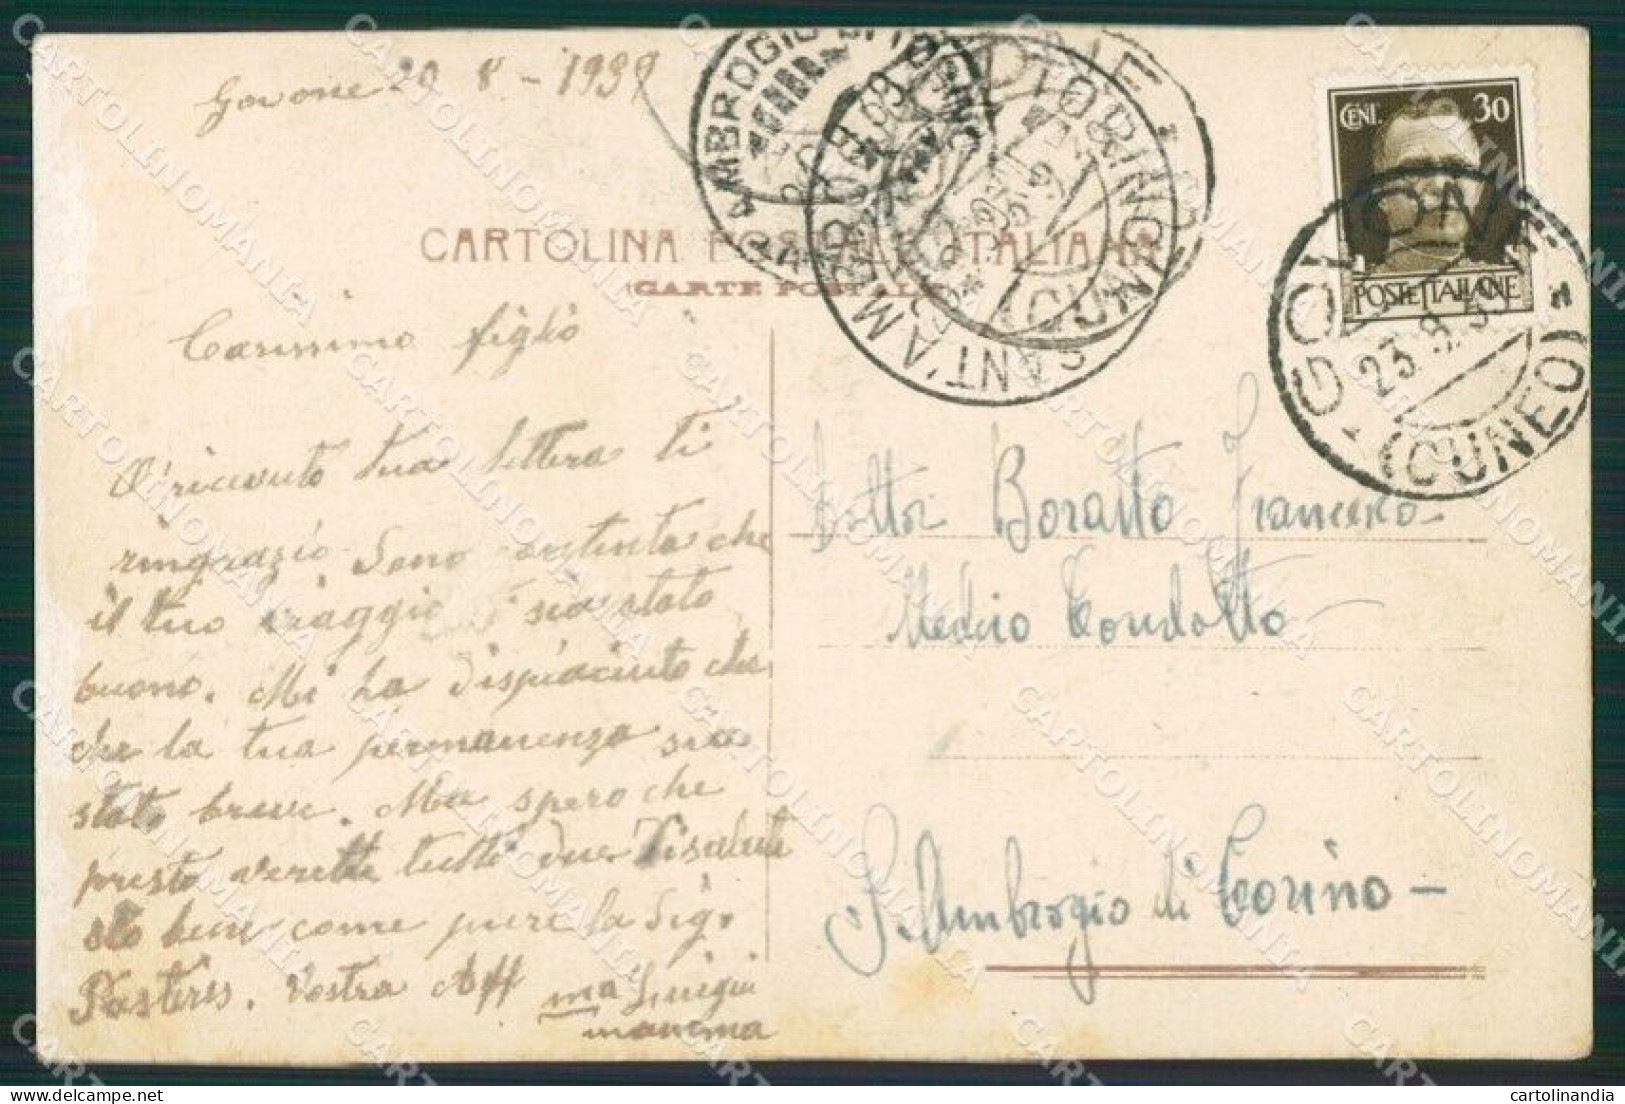 Govone 20 8 - 1939
CARTOLINA POSTALE ITALIANA
(CARTE POSTALE)
CENT. 30
POSTE ITALIANE
GOVONE
23.8.39
(CUNEO)
SANT'AMBROGIO DI TORINO
Carissimo figlio
O' ricevuto tua lettera ti
ringrazio Sono contenta che
il tuo viaggio sia stato
buono. Mi ha dispiaciuto che
che la tua permanenza sia
stato breve. Ma spero che
presto verette tutti due Ti saluta
sto bene come pure la Sig.
Vostra Aff ma
mamma
Dottor Boratto Francesco
Medico Condotto
S. Ambrogio di Torino -
cartolinandia